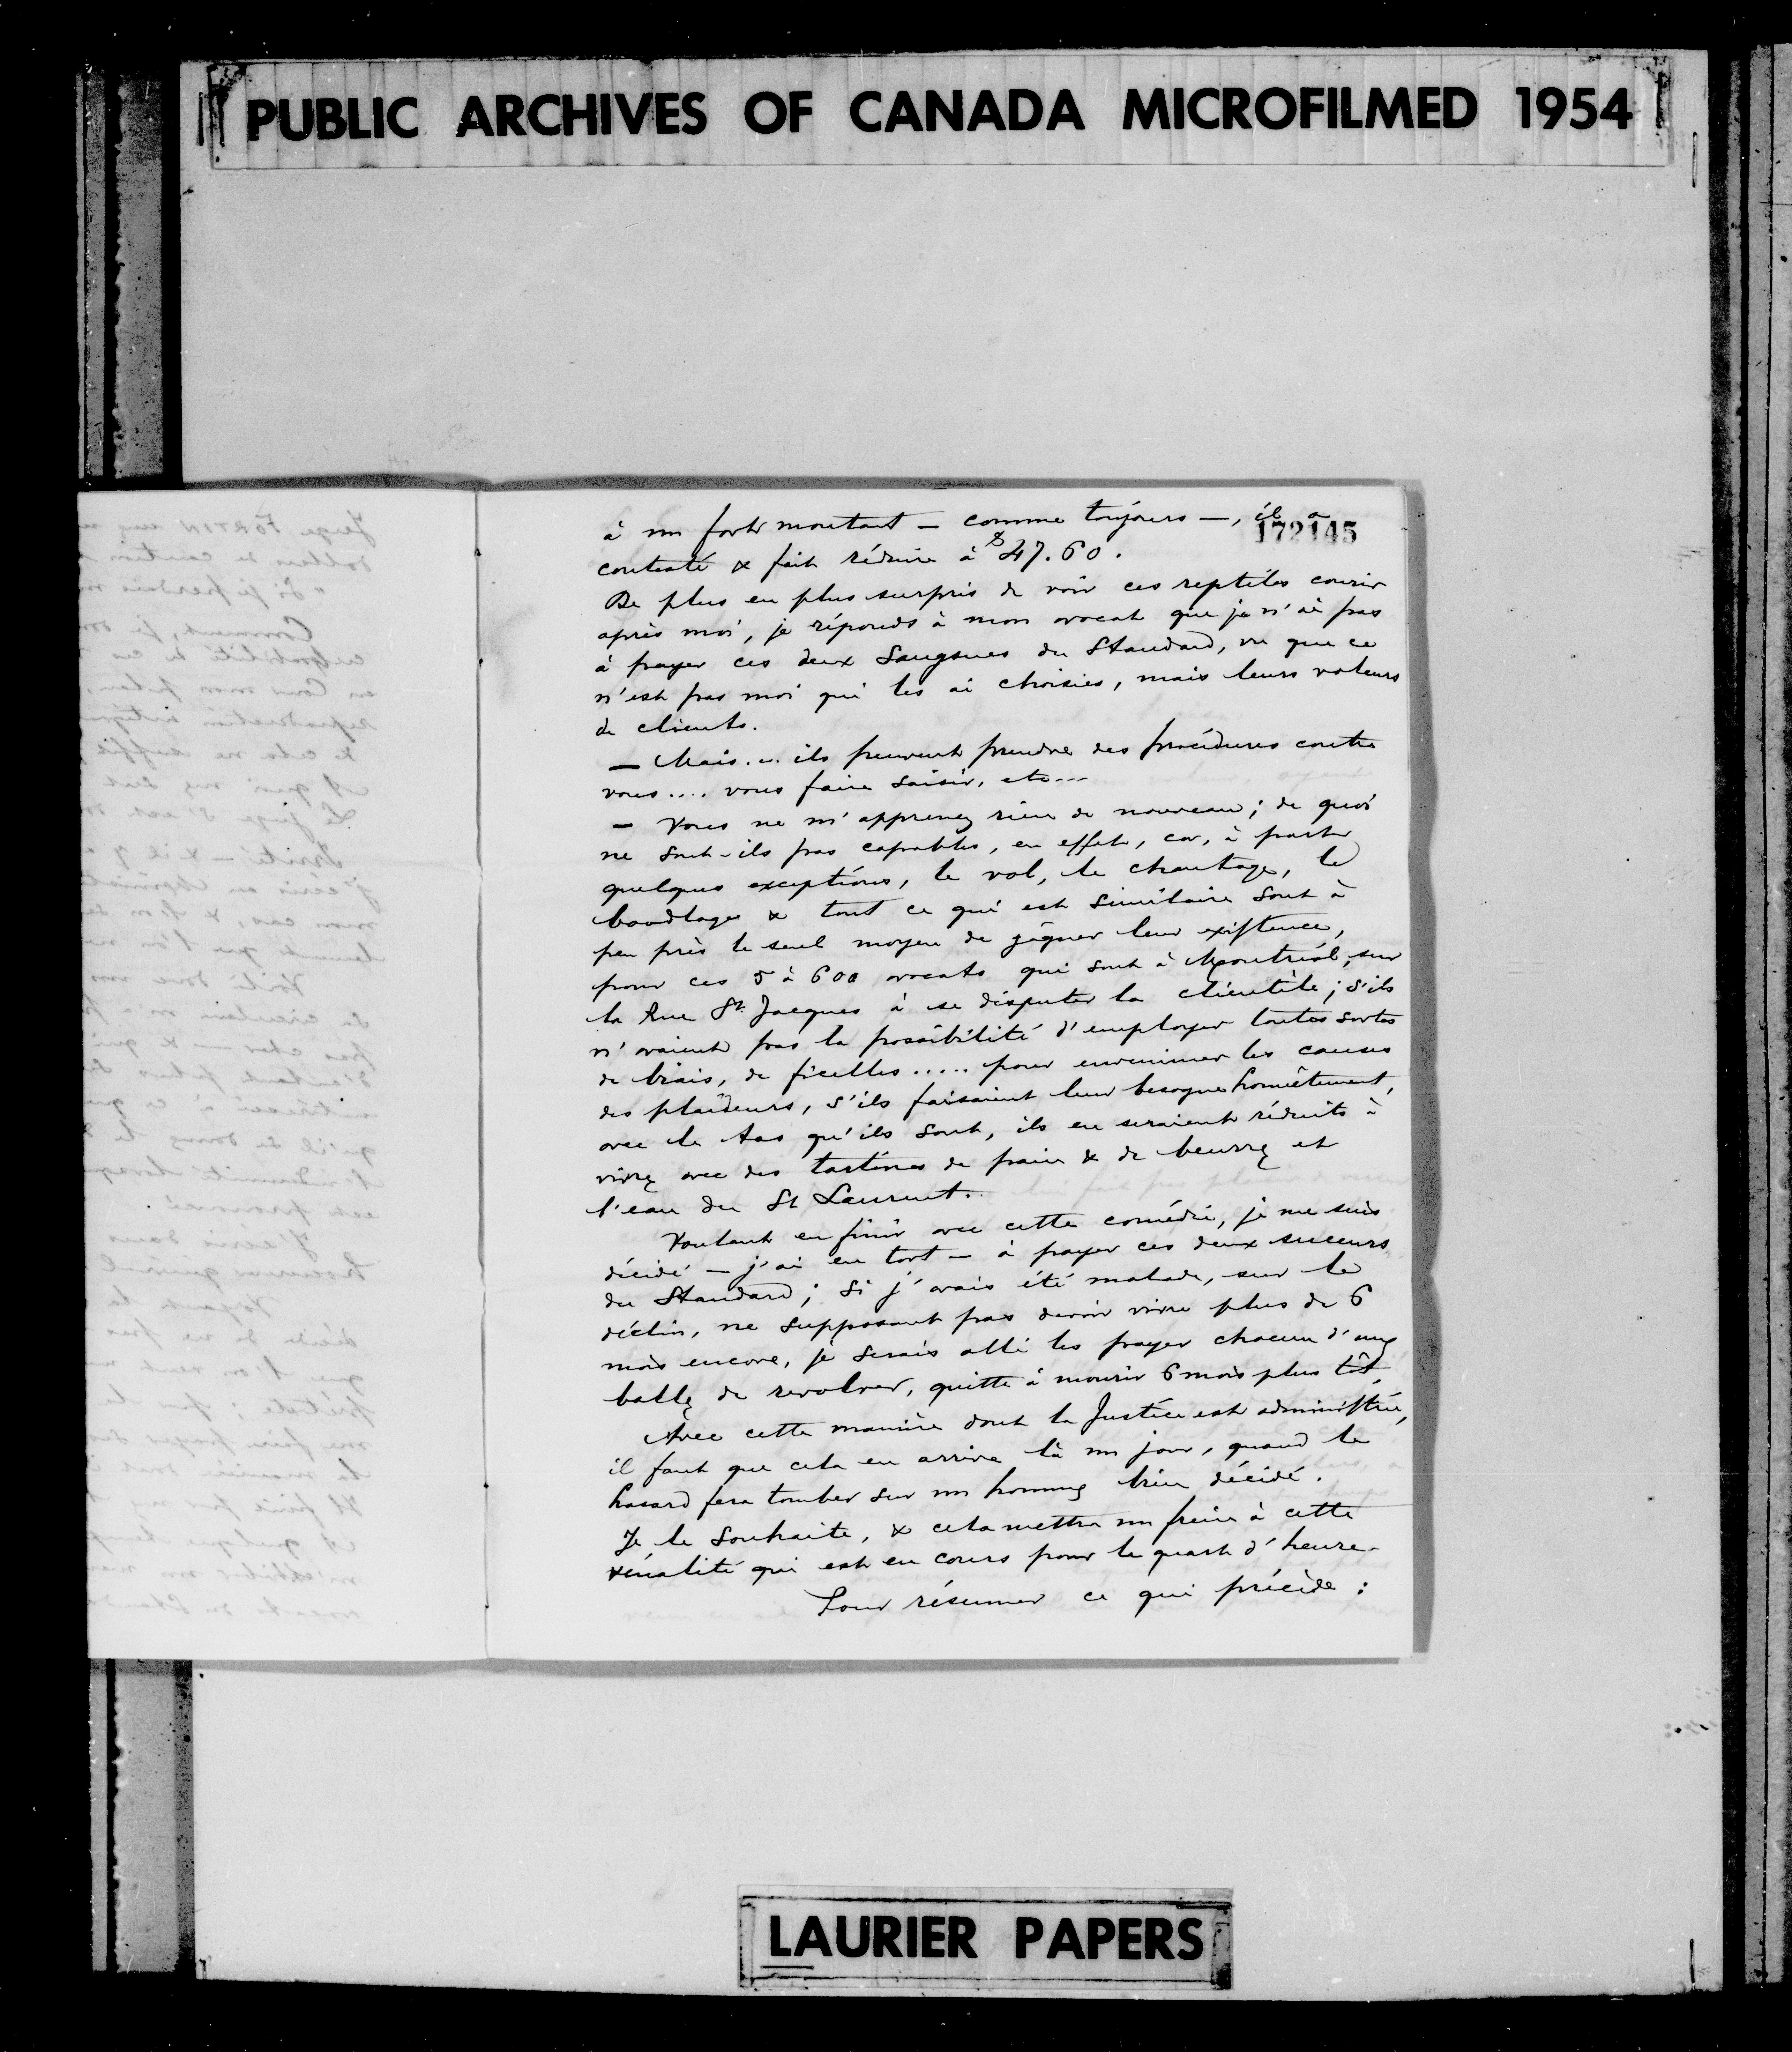 PUBLIC ARCHIVES OF CANADA MICROFILMED 1954
172145
à un fort montant – comme toujours –, il a
contesté & fait réduire à $47.60.
De plus en plus surpris de voir ces reptiles courir
après moi, je réponds à mon avocat que je n'ai pas
à payer ces deux sangsues du Standard, vu que ce
n'est pas moi qui les ai choisies, mais leurs voleurs
de clients.
– Mais... ils peuvent prendre des procédures contre
vous.... vous faire saisir, etc...
– Vous ne m'apprenez rien de nouveau; de quoi
ne sont-ils pas capables, en effet, car, à part
quelques exceptions, le vol, le chantage, le
boodlage & tout ce qui est similaire sont à
peu près le seul moyen de gagner leur existence,
pour ces 5 à 600 avocats qui sont à Montréal, sur
la Rue St Jacques à se disputer la clientèle; s'ils
n'avaient pas la possibilité d'employer toutes sortes
de biais, de ficelles..... pour envenimer les causes
des plaideurs, s'ils faisaient leur besogne honnêtement,
avec le tas qu'ils sont, ils en seraient réduits à
vivre avec des tartines de pain & de beurre et
l'eau du St Laurent.
Voulant en finir avec cette comédie, je me suis
décidé – j'ai eu tort – à payer ces deux suceurs
du Standard; si j'avais été malade, sur le
déclin, ne supposant pas devoir vivre plus de 6
mois encore, je serais allé les payer chacun d'une
balle de revolver, quitte à mourir 6 mois plus tôt.
Avec cette manière dont la Justice est administrée,
il faut que cela en arrive là un jour, quand le
hasard fera tomber sur un homme bien décidé.
Je le souhaite, & cela mettra un frein à cette
vénalité qui est en cours pour le quart d'heure.
Pour résumer ce qui précède :
LAURIER PAPERS